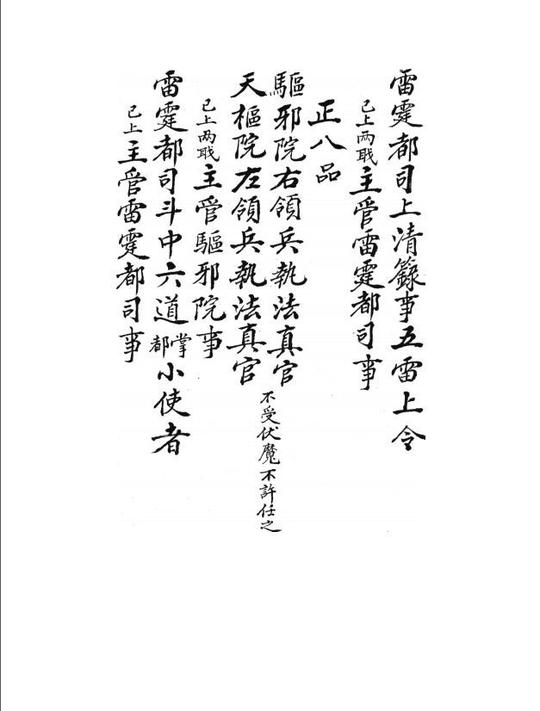 雷霆都司上清籙事五雷上令
已上兩職主管雷霆都司事
正八品
驅邪院右領兵執法真官
天樞院左領兵執法真官不受伏魔不許任之
已上兩職主管驅邪院事
雷霆都司斗中六道掌都小使者
已上主管雷霆都司事